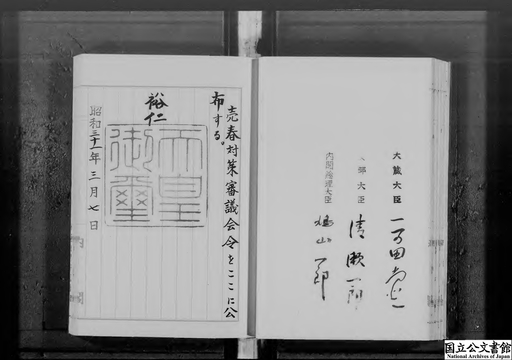 大蔵大臣 一万田尚登
文部大臣 清瀬一郎
内閣総理大臣 鳩山一郎
売春対策審議会令をここに公
布する。
裕仁
天皇
御璽
昭和三十一年三月七日
国立公文書館
National Archives of Japan